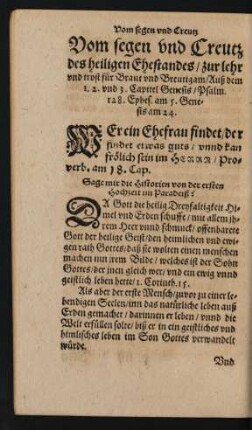 Vom segen vnd Creutz
Vom segen vnd Creutz
des heiligen Ehestandes / zur lehr
vnd trost für Braut vnd Breutigam / Auß dem
1. 2. vnd 3. Capitel Genesis / Psalm.
128. Ephes. am 5. Gene-
sis am 24.
WEr ein Ehefrau findet / der
findet etwas guts / vnnd kan
frölich sein im HERRN / Pro-
verb. am 18. Cap.
Sage mir die Historien von der ersten
Hochzeit im Paradeiß?
DA Gott die heilig Dreyfaltigkeit Hi-
mel vnd Erden schuffe / mit allem jh-
rem Heer vnnd schmuck / offenbarete
Gott der heilige Geist den heimlichen vnd ewi-
gen rath Gottes / daß sie wolten einen menschen
machen nun jrem Bilde / welches ist der Sohn
Gottes / der jnen gleich wer / vnd ein ewig vnnd
geistlich leben hette / 1. Corinth. 15.
Als aber der erste Mensch / zuvor zu einer le-
bendigen Seelen / inn das natürliche leben auß
Erden gemacher / darinnen er leben / vnnd die
Welt erfüllen solte / biß er in ein geistliches vnd
himlisches leben im Son Gottes verwandelt
würde.
Vnd